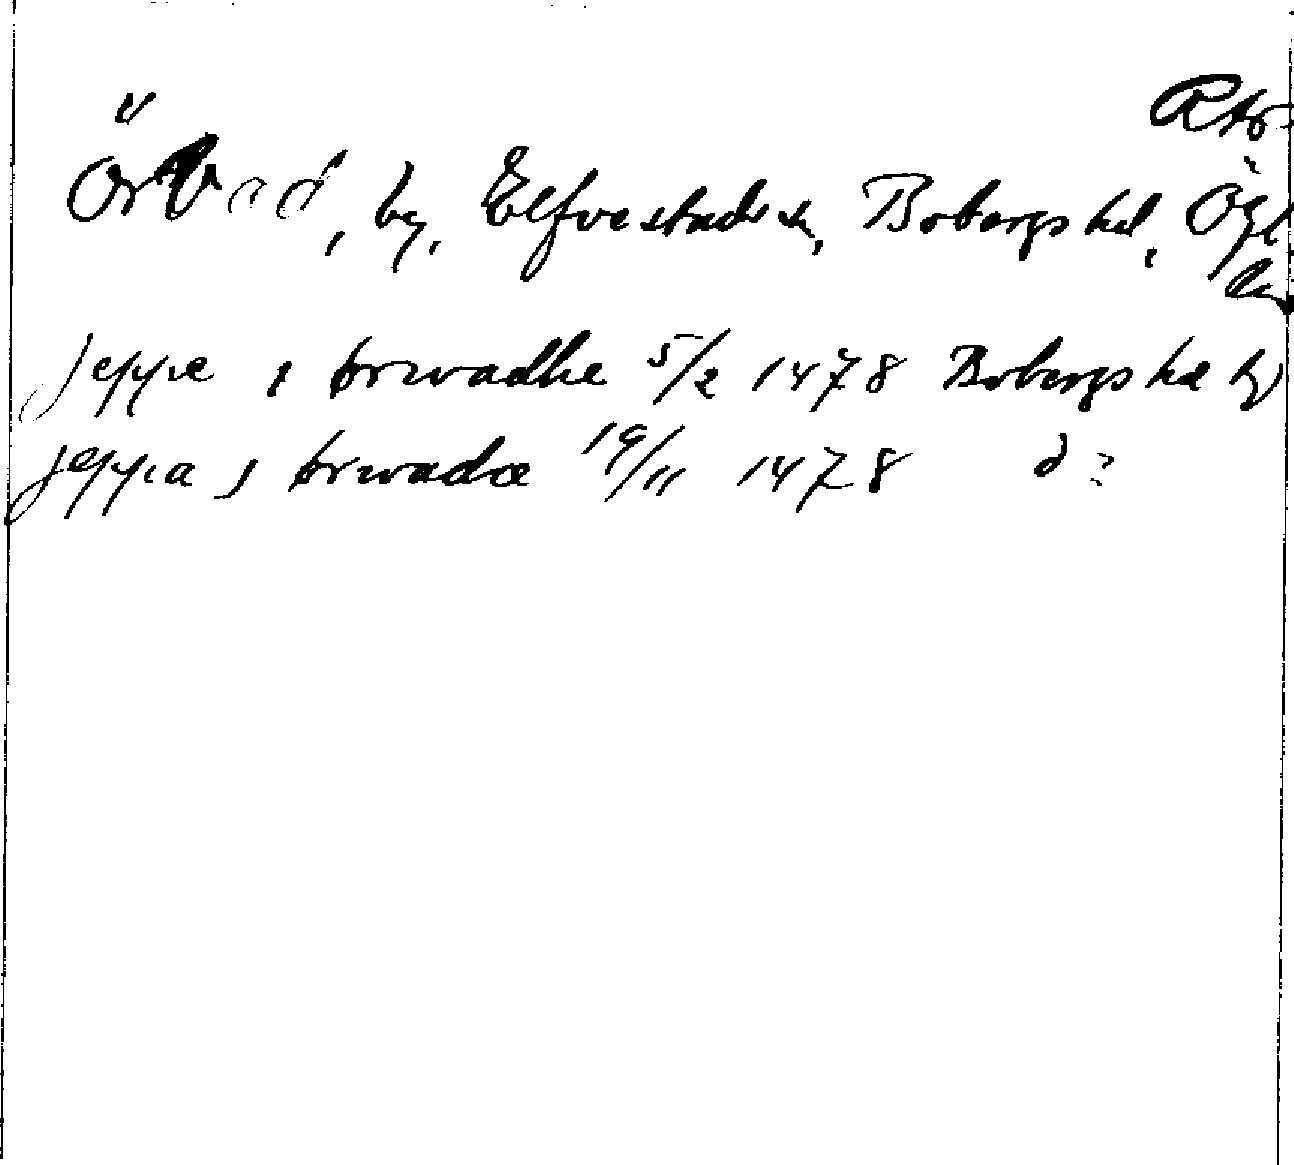 Rtr
Örvad, by, Elfvestads sn, Bobergs hd, Ögl
jeppe j ørwadhe 5/2 1478 Bobergs hd
jeppa j ørwadæ 19/11 1478 do